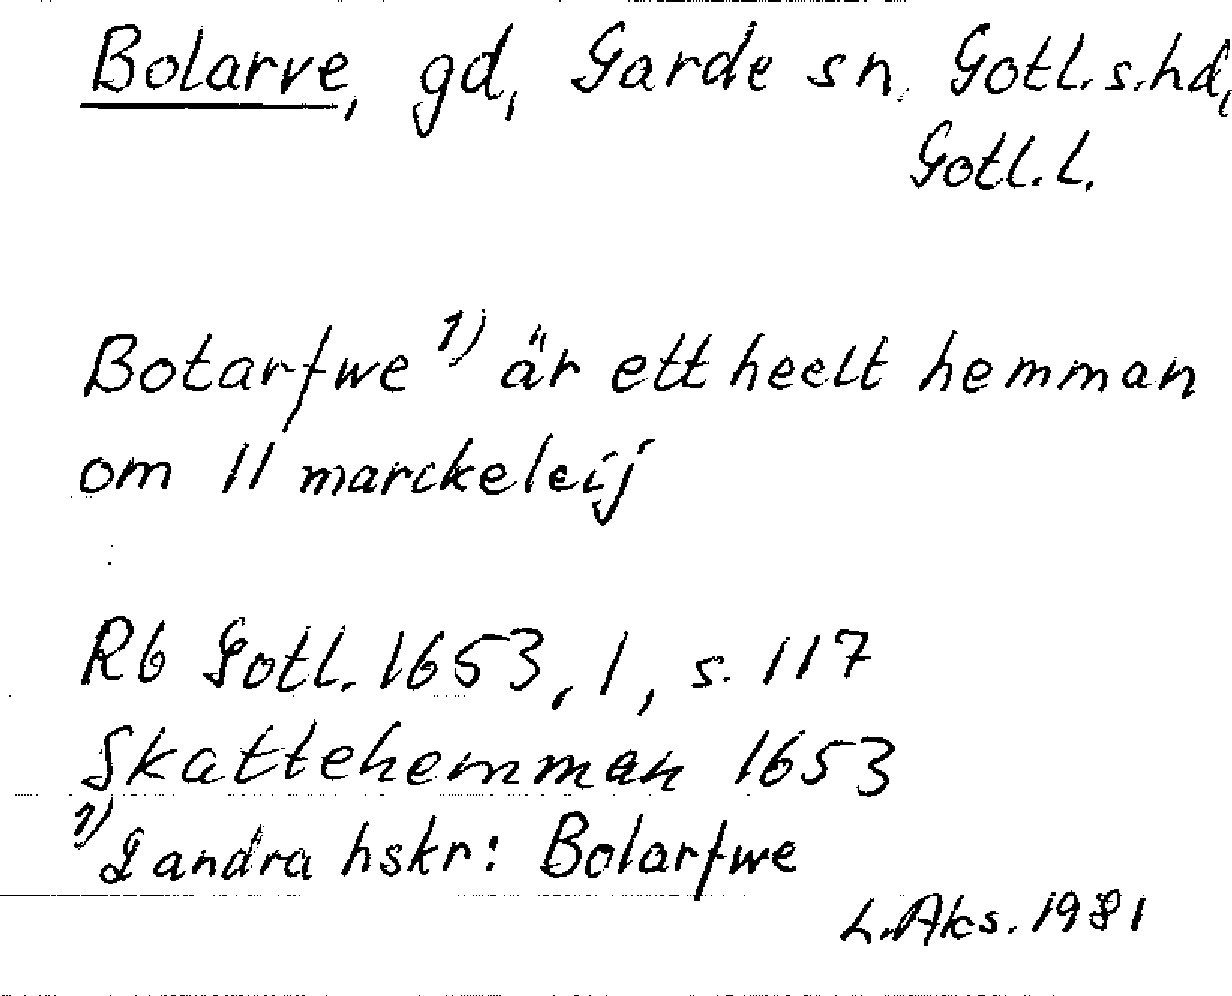 Bolarve, gd, Garde sn, Gotl.s.hd,
Gotl.l.
Botarfwe 1) är ett heelt hemman
om 11 marckeleij
Rb Gotl. 1653, 1, s. 117
Skattehemman 1653
1) I andra hskr: Bolarfwe
L.Aks. 1981